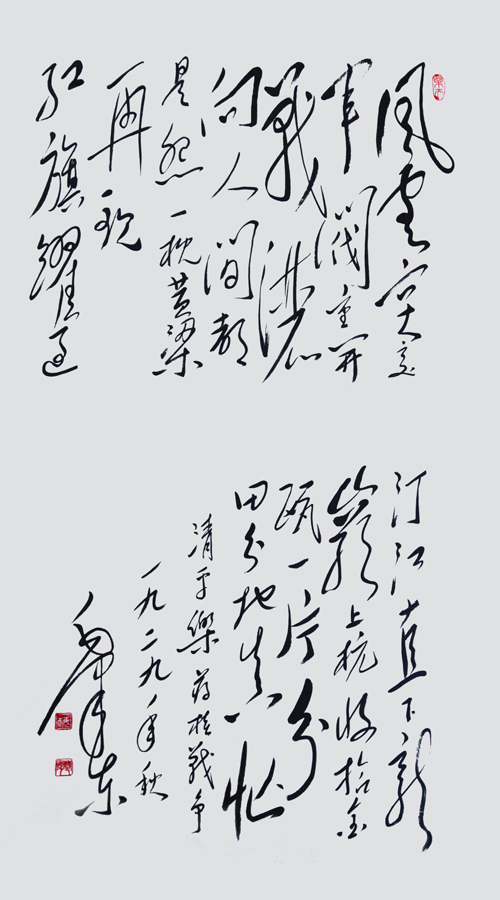 風雲突变
軍閥重开
戰灑
向人間都
是怨一枕黄粱
再现
红旗躍过
汀江直下龍
巖上杭收拾金
甌一片分
田分地真忙
清平樂 蒋桂战争
一九二九年秋
毛泽东